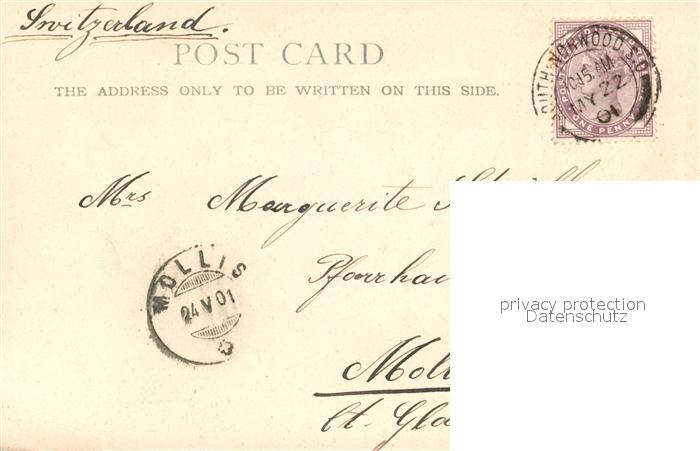 Switzerland.
POST CARD
THE ADDRESS ONLY TO BE WRITTEN ON THIS SIDE.
SOUTH NORWOOD S.O
MY 22
01
ONE PENNY
Mrs Marguerite
Pfarrhau
MOLLIS
24 V 01
Moll
Ct. Gla
privacy protection
Datenschutz